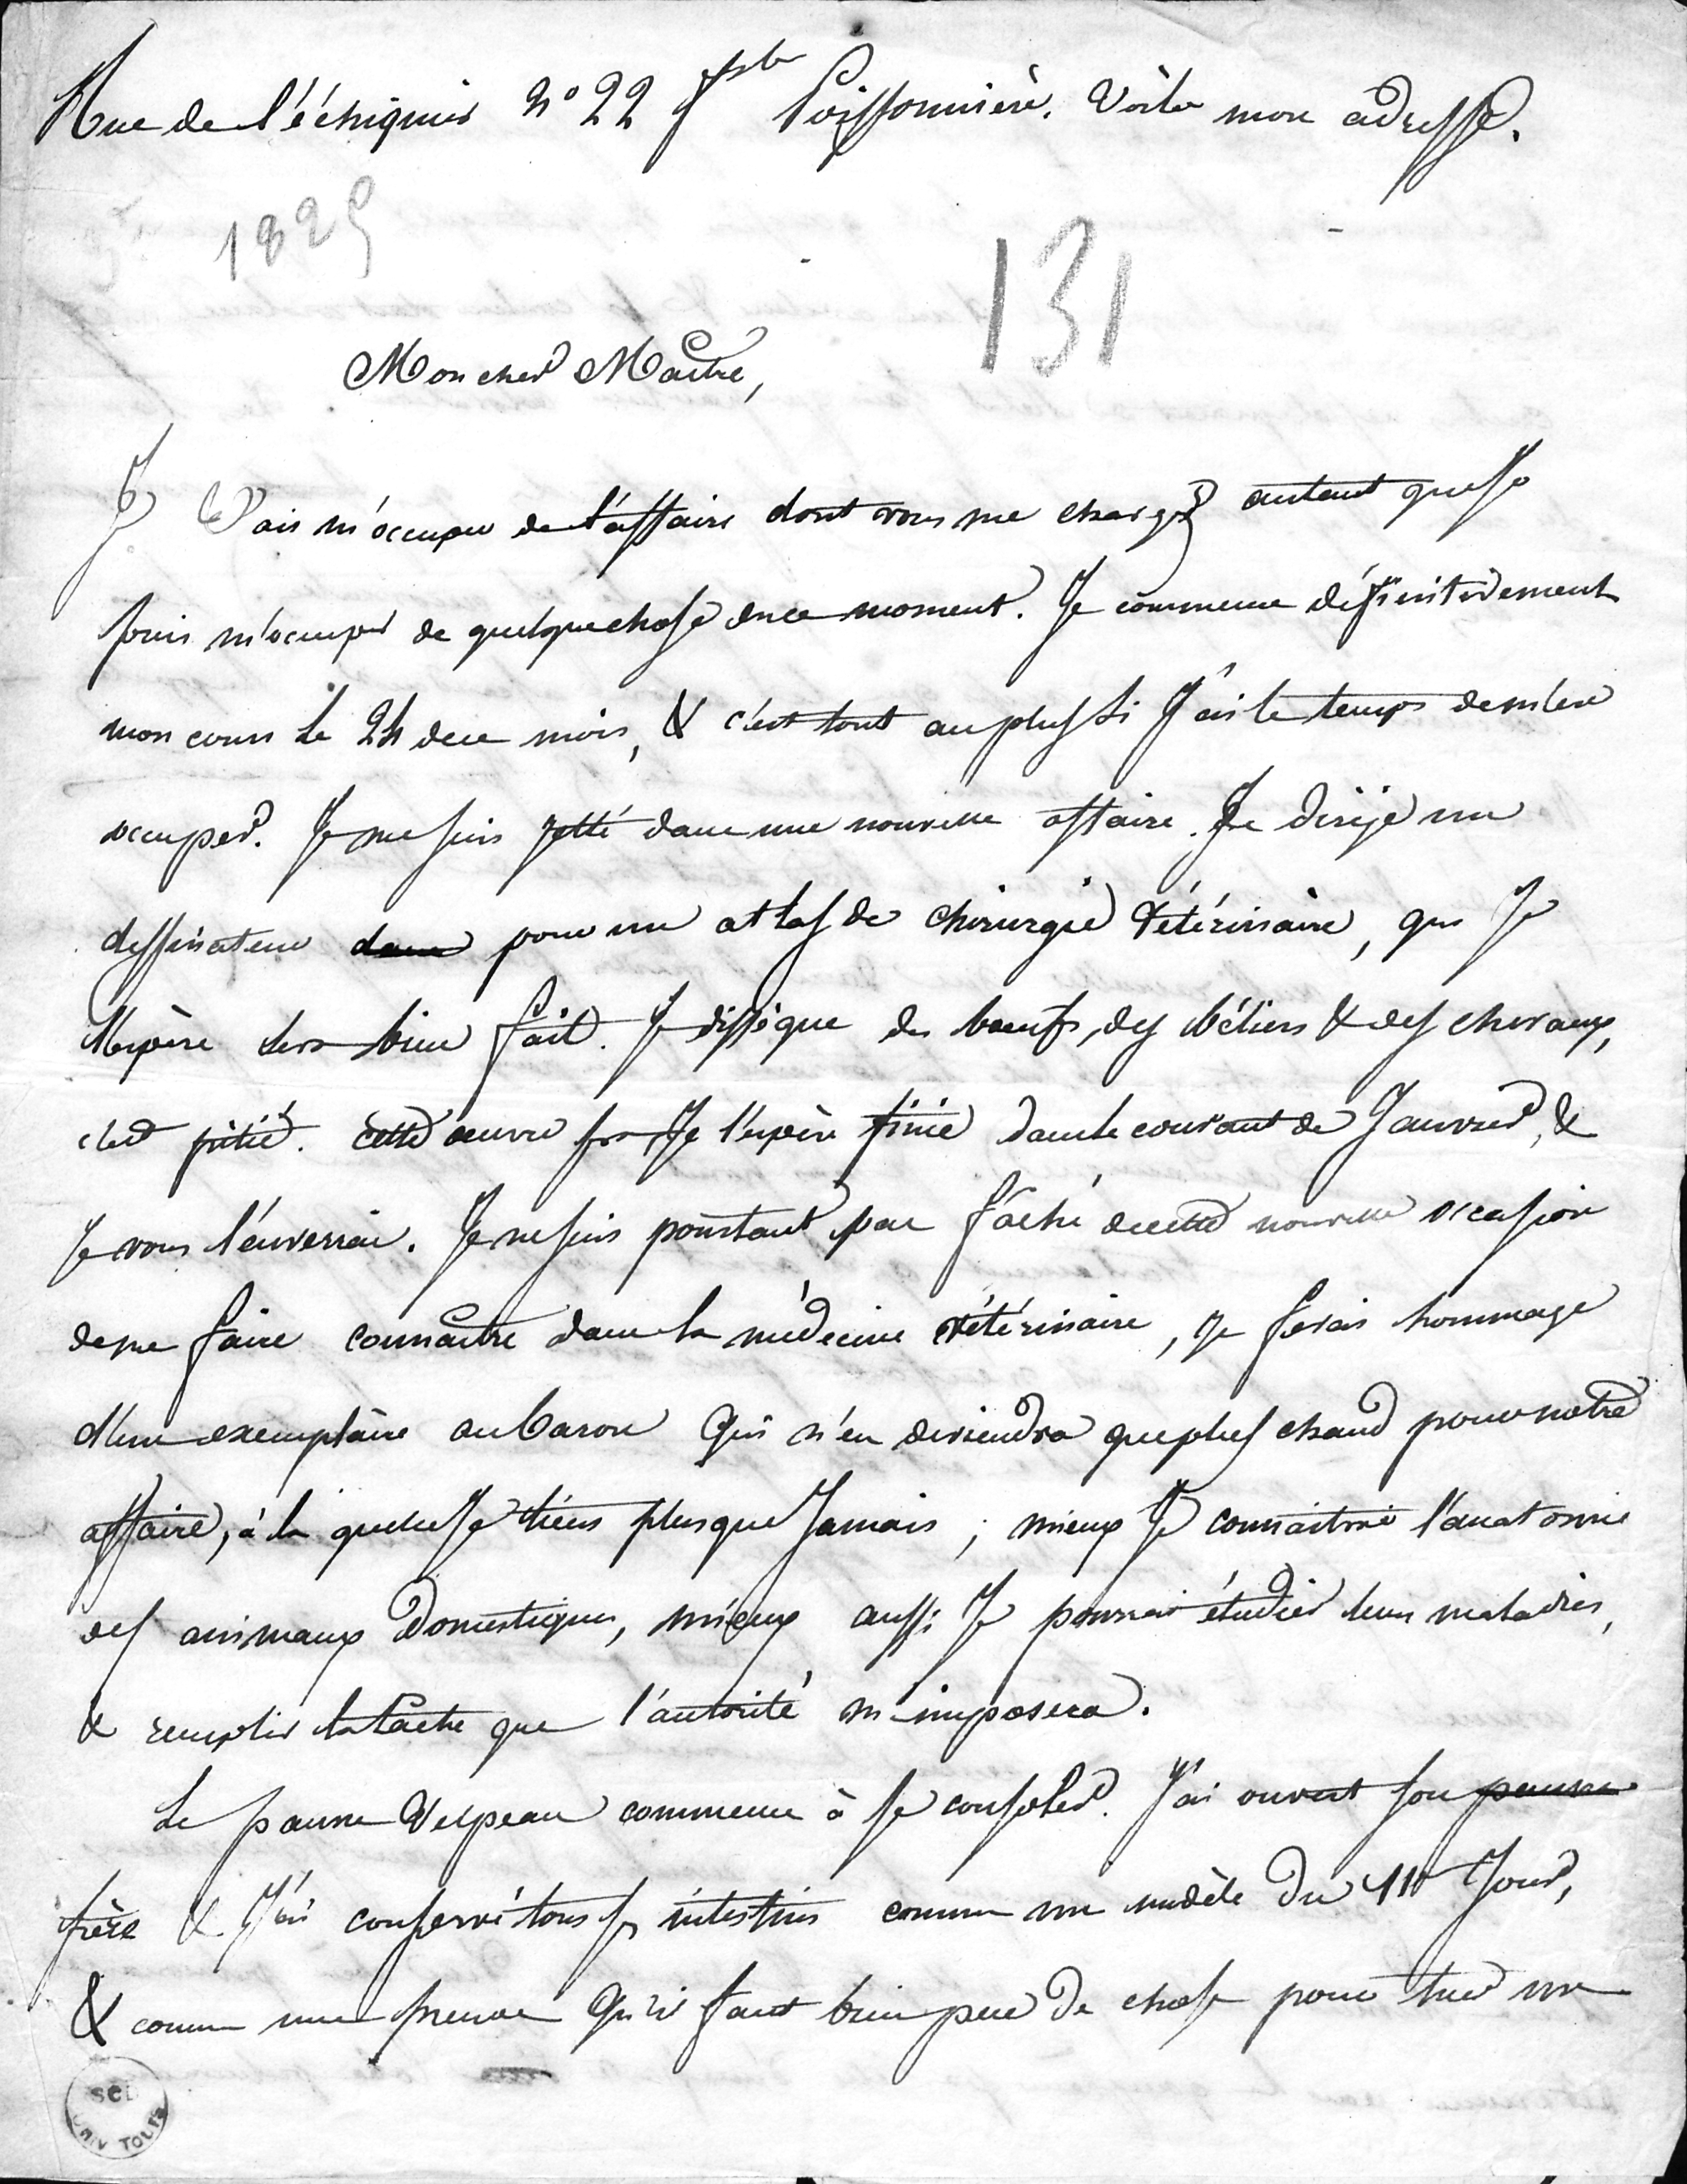 Rue de l'échiquier n° 22 fbg Poissonnière. Voila mon adresse.
1829
131
Mon cher Maitre,
Je Vais m'occuper de l'affaire dont vous me chargez autant que je
puis m'occuper de quelque chose en ce moment. Je commence définitivement
mon cours le 24 de ce mois, & c'est tout au plus si J'ai le temps de m'en
occuper. Je me suis jetté dans une nouvelle affaire. Je dirije un
dessinateur dans pour un atlas de chirurgie Vétérinaire, qui Je
l'espère sera bien fait. Je dissèque des boeufs, des béliers & des chevaux,
c'est pitié. cette oeuvre sera Je l'espère finie dans le courant de Janvier, &
Je vous l'enverrai. Je ne suis pourtant pas fâché de cette nouvelle occasion
de me faire connaitre dans la médecine vétérinaire, je ferais hommage
d'un exemplaire au baron qui n'en deviendra que plus chaud pour notre
affaire, à la quelle Je tiens plus que Jamais ; mieux Je connaitrai l'anatomie
des animaux domestiques, mieux aussi Je pourrai étudier leurs maladies,
& remplir la tache que l'autorité m'imposera.
Le pauvre Velpeau commence à se consoler. J'ai ouvert son pauvre
frère & J'ai conservé tous ses intestins comme un modèle du 11e Jour,
& comme une preuve qu'il faut bien peu de chose pour tuer un
SCD
UNIV TOURS